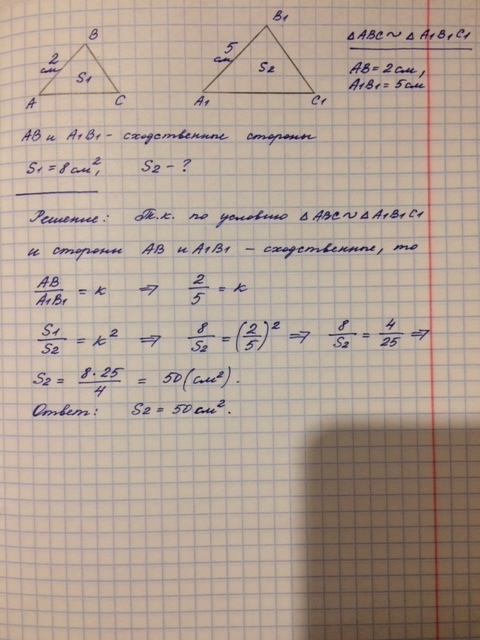 B
2 см
S1
A C
B1
5 см
S2
A1 C1
△ABC ~ △A1B1C1
AB = 2 см,
A1B1 = 5 см
AB и A1B1 - сходственные стороны
S1 = 8 см², S2 - ?
Решение: Т.к. по условию △ABC ~ △A1B1C1
и стороны AB и A1B1 - сходственные, то
AB/A1B1 = k ⇒ 2/5 = k
S1/S2 = k² ⇒ 8/S2 = (2/5)² ⇒ 8/S2 = 4/25 ⇒
S2 = 8·25/4 = 50 (см²).
Ответ: S2 = 50 см².